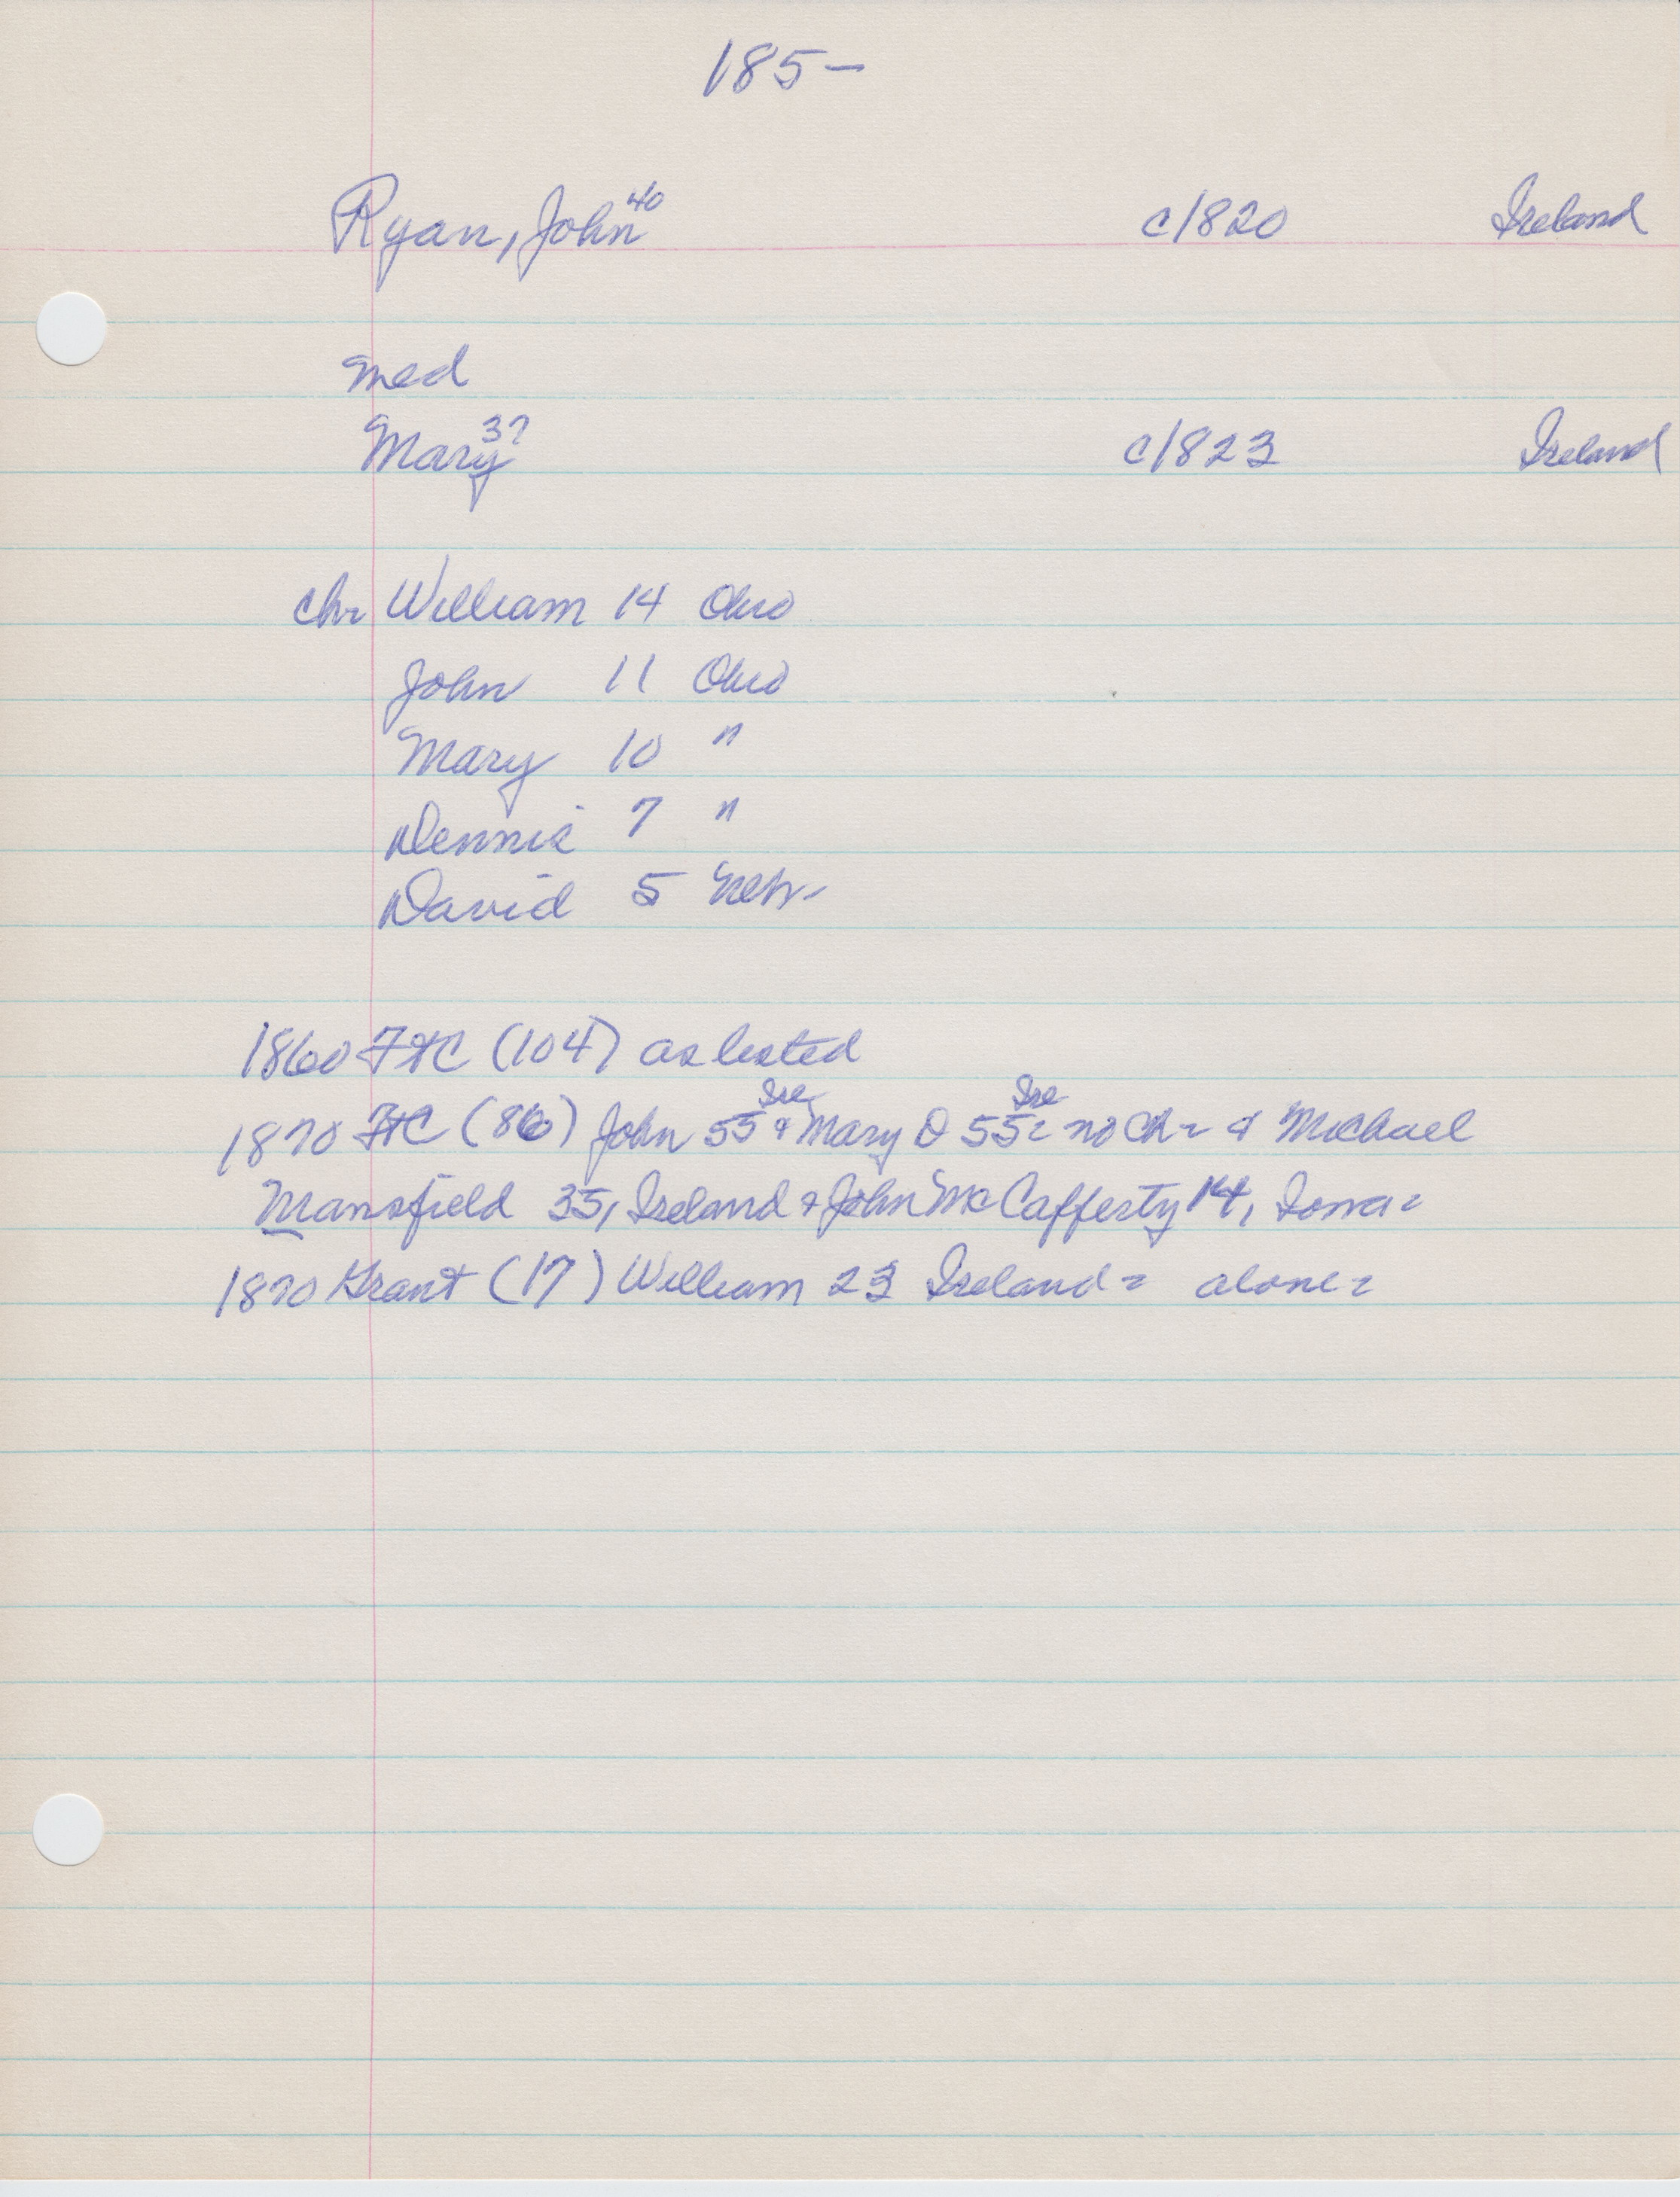 185-
Ryan, John 40 c1820 Ireland
med
Mary 37 c1823 Ireland
chr William 14 Ohio
John 11 Ohio
Mary 10 "
Dennis 7 "
David 5 Nebr
1860 FtC (104) as listed
1870 FtC (86) John 55 Ire & Mary O 55 Ire - no ch - & Michael
Mansfield 35, Ireland & John McCafferty 14, Iowa -
1870 Grant (17) William 23 Ireland - alone -